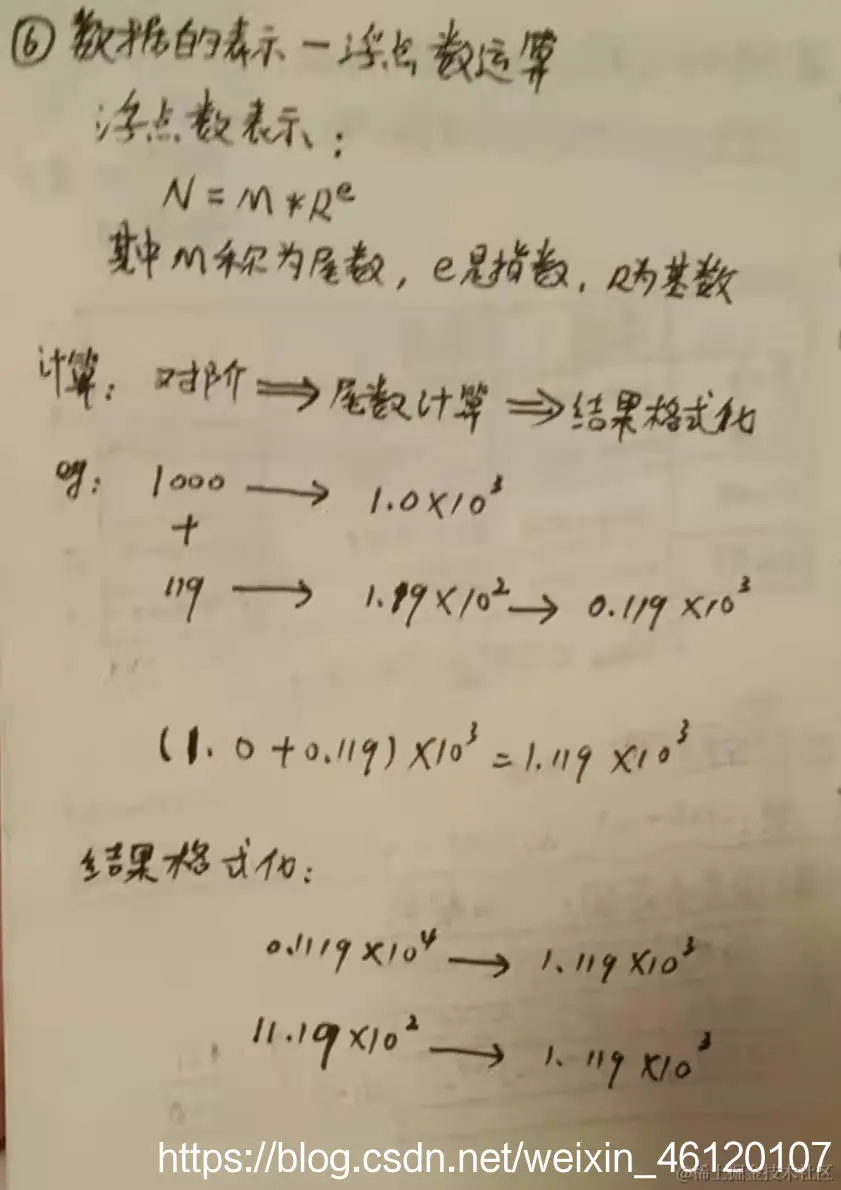 ⑥ 数据的表示-浮点数运算
浮点数表示:
N=M*Rᵉ
其中M称为尾数, e是指数, R为基数
计算: 对阶 ⟹ 尾数计算 ⟹ 结果格式化
eg: 1000 → 1.0×10³
+
119 → 1.19×10² → 0.119×10³
(1.0+0.119)×10³=1.119×10³
结果格式化:
0.1119×10⁴ → 1.119×10³
11.19×10² → 1.119×10³
https://blog.csdn.net/weixin_46120107
@稀土掘金技术社区